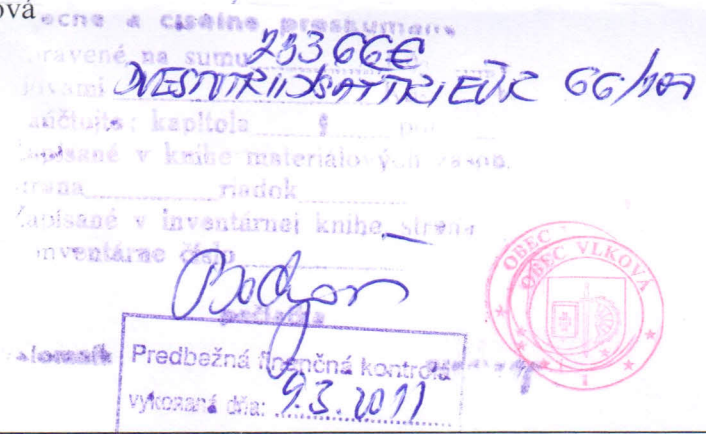 ová
ecne a číselne preskúmané
pravené na sumu 233 66 €
slovami DVESTOTRIIDSAŤTRI EUR 66/100
účtujte: kapitola 9
Zapísané v knihe materiálových zásob,
strana riadok
Zapísané v inventárnej knihe, strana
inventárne číslo
pečiatka
Predbežná finančná kontrola
vykonaná dňa: 9.3.2011
OBEC VLKOVÁ